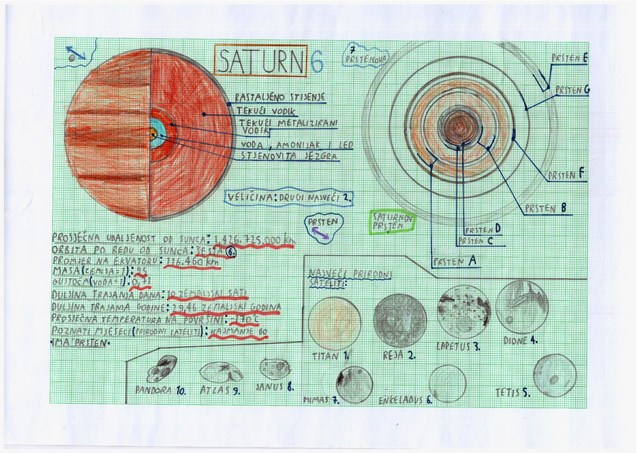 SATURN 6
7 PRSTENOVA
PRSTEN E
PRSTEN G
PRSTEN F
PRSTEN B
PRSTEN D
PRSTEN C
PRSTEN A
RASTALJENO STIJENJE
TEKUĆI VODIK
TEKUĆI METALIZIRANI
VODIK
VODA, AMONIJAK I LED
STJENOVITA JEZGRA
VELIČINA: DRUGI NAJVEĆI 2.
PRSTEN
SATURNOV
PRSTEN
PROSJEČNA UDALJENOST OD SUNCA: 1,426.725.000 km
ORBITA PO REDU OD SUNCA: ŠESTA 6.
PROMJER NA EKVATORU: 116.460 km
MASA (ZEMLJA=1): 95
GUSTOĆA (VODA=1): 0,71
DULJINA TRAJANJA DANA: 10 ZEMALJSKI SATI
DULJINA TRAJANJA GODINE: 29,46 ZEMALJSKI GODINA
PROSJEČNA TEMPERATURA NA POVRŠINI: -170°C
POZNATI MJESECI (PRIRODNI SATELITI): NAJMANJE 60
IMA PRSTEN.
NAJVEĆI PRIRODNI
SATELITI:
TITAN 1.
REJA 2.
LAPETUS 3.
DIONE 4.
PANDORA 10.
ATLAS 9.
JANUS 8.
MIMAS 7.
ENKELADUS 6.
TETIS 5.